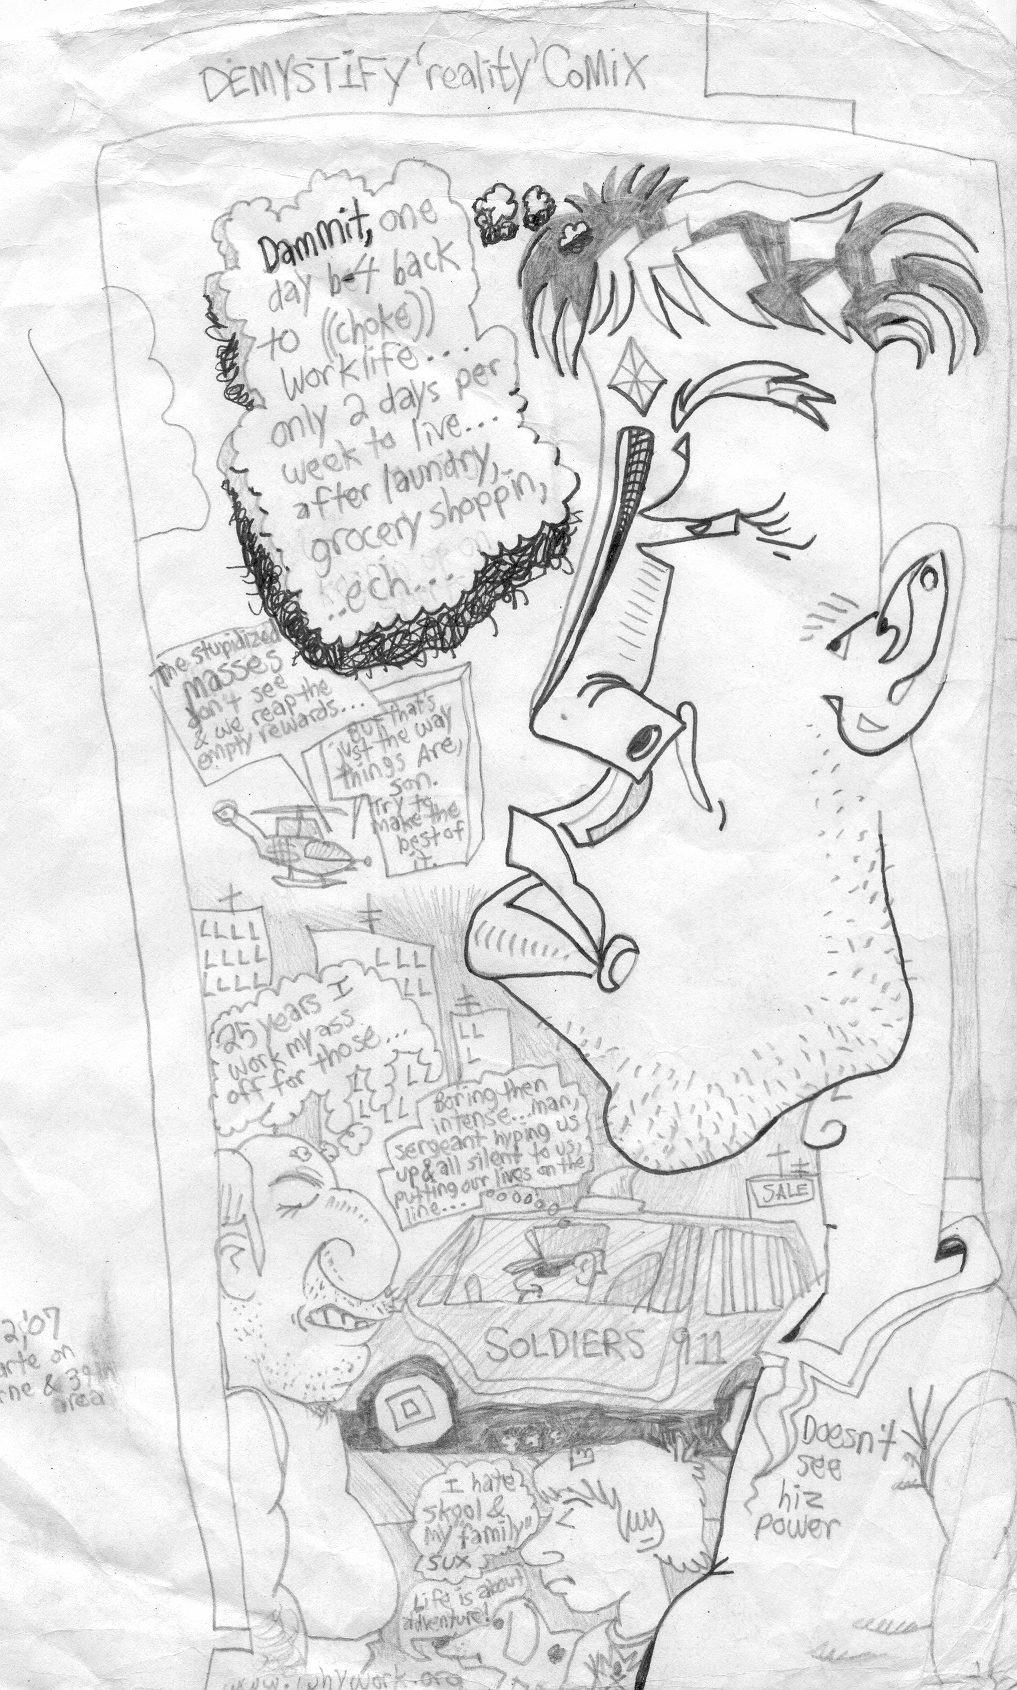 DEMYSTIFY 'reality' COMIX
Dammit, one
day b-4 back
to ((choke))
worklife...
only 2 days per
week to live...
after laundry,
grocery shoppin,
...ech...
The stupidized
masses
don't see
& we reap the
empty rewards...
But that's
just the way
things Are,
son.
Try to
make the
best of
it.
$
LLLL
LLLL
LLLL
LLL
LL
LL
L
25 years I
work my ass
off for those...
Boring then
intense...man,
sergeant hyping us
up & all silent to us,
putting our lives on the
line...
SALE
SOLDIERS 911
Doesn't
see
hiz
power
I hate
skool &
my "family"
sux
Life is about
adventure!
2,'07
arte on
rne & 39th
area
www.whywork.org